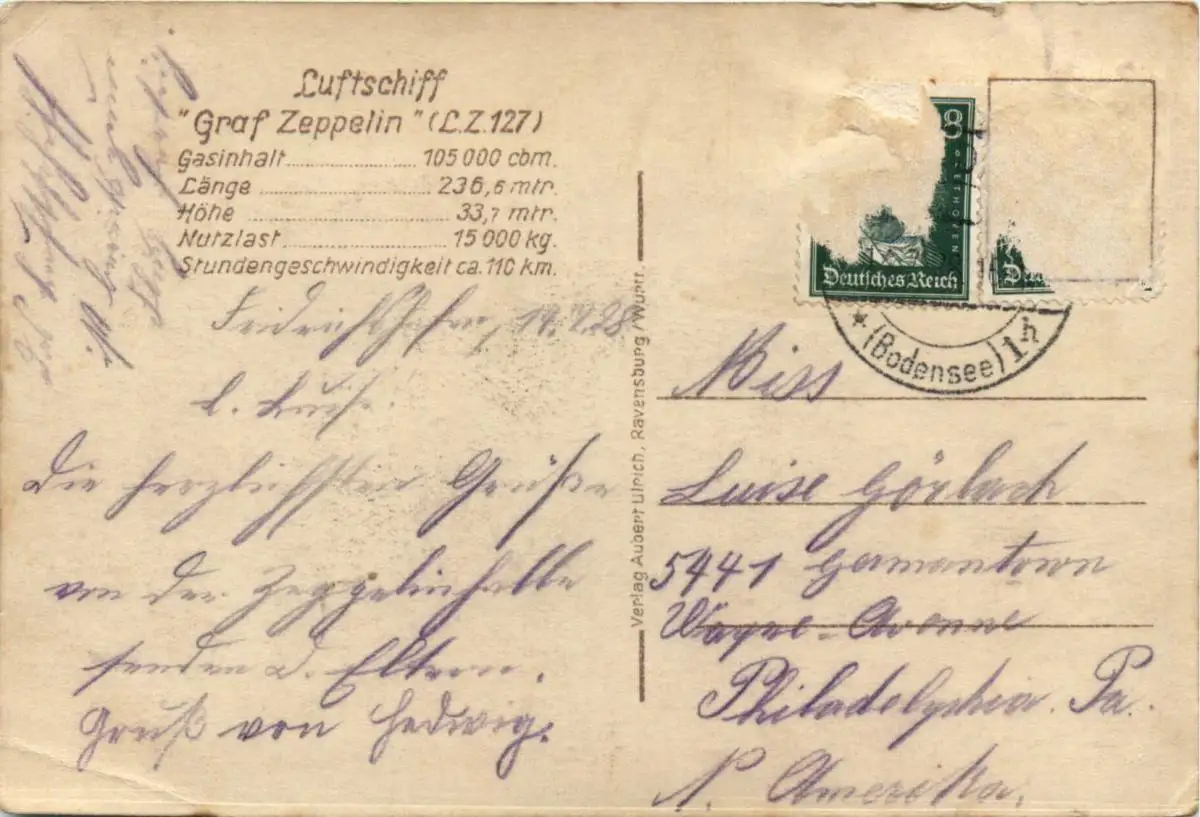 Luftschiff
"Graf Zeppelin" (L.Z.127)
Gasinhalt.................... 105 000 cbm.
Länge .......................... 236,6 mtr.
Höhe ............................ 33,7 mtr.
Nutzlast...................... 15 000 kg.
Stundengeschwindigkeit ca. 110 km.
l. Luise.
Die herzlichsten Grüße
von der Zeppelinhalle
senden d. Eltern.
Gruß von Hedwig.
Verlag Aubert Ulrich, Ravensburg/Württ.
8
BEETHOVEN
Deutsches Reich
(Bodensee) 1h
Miss
Luise Görlach
5441 Germantown
Wayne-Avenue
Philadelphia. Pa.
N. Amerika.